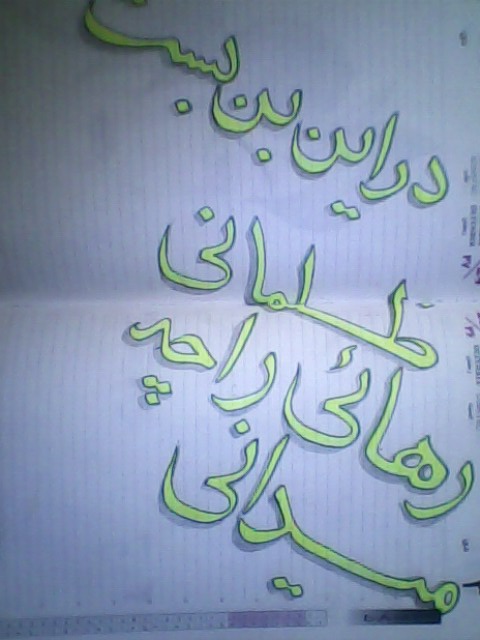 در این بن بست
ظلمانی
رهائی را چه
میدانی